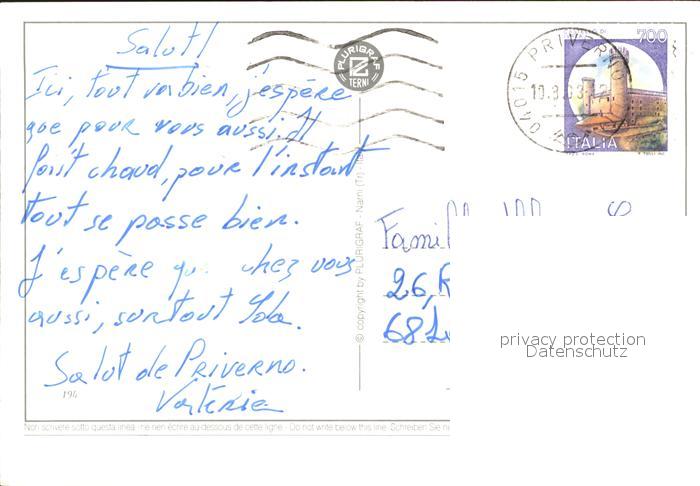 Salut!
Ici, tout va bien, j'espère
que pour vous aussi. Il
fait chaud, pour l'instant
tout se passe bien.
J'espère qu chez vous
aussi, surtout
Salut de Priverno.
Valérie
194
PLURIGRAF
TERNI
© copyright by PLURIGRAF - Narni (Tr) -
04015 PRIVERNO
10.8.
700
ITALIA
Famil
26,
68
privacy protection
Datenschutz
Non scrivete sotto questa linea - ne rien écrire au-dessous de cette ligne - Do not write below this line. Schreiben Sie ni